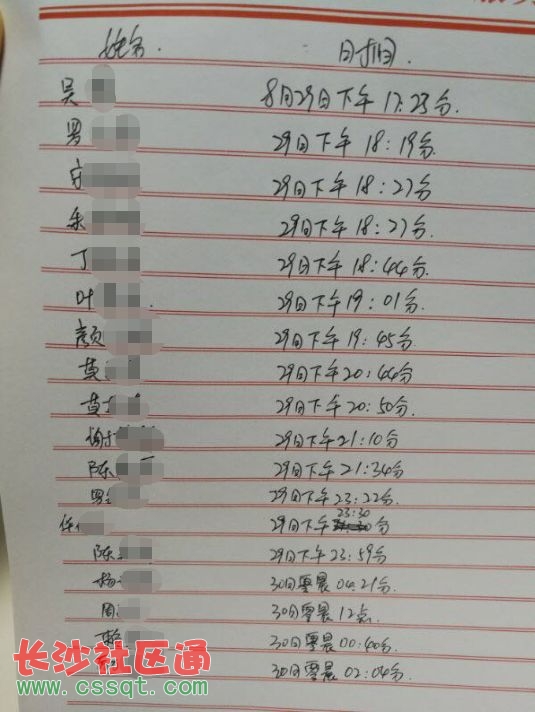 姓名. 日期.
吴 8月29日下午 17:23分.
罗 29日下午 18:19分.
29日下午 18:27分
朱 29日下午 18:27分.
丁 29日下午 18:44分.
叶 29日下午 19:01分.
颜 29日下午 19:45分.
莫 29日下午 20:44分
黄 29日下午 20:50分.
29日下午 21:10分
陈 29日下午 21:34分
29日下午 23:22分.
任 29日下午 23:30分
陈 29日下午 23:59分
杨 30日零晨 04:21分.
周 30日零晨 12点.
30日零晨 00:40分.
30日零晨 02:04分.
长沙社区通
www.cssqt.com